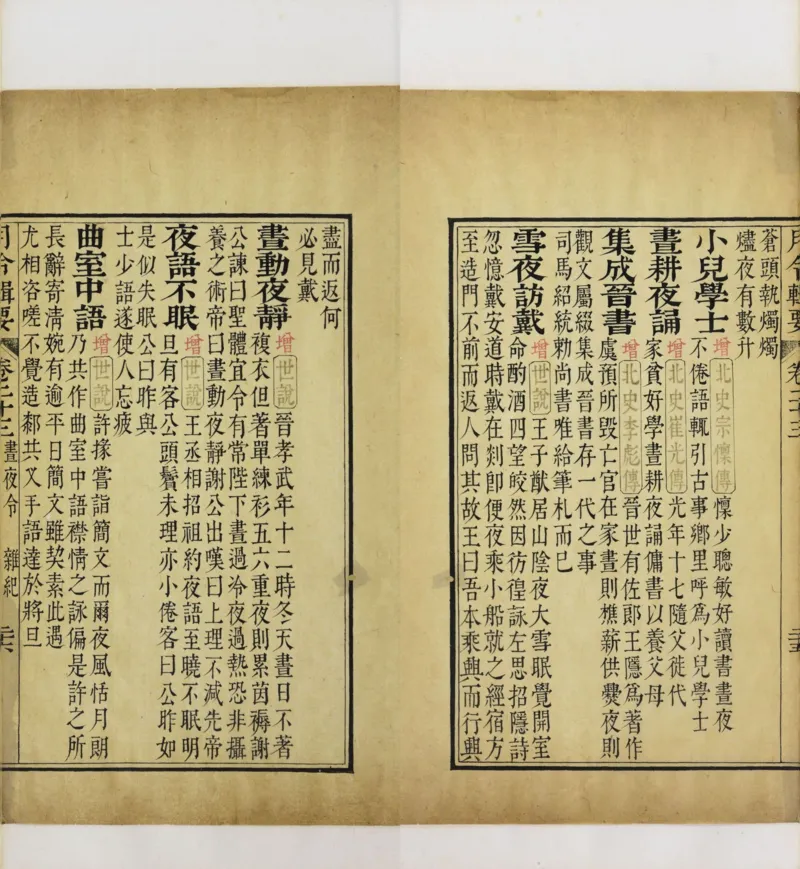 月令輯要 卷二十三
蒼頭執燭燭
燼夜有數升
小兒學士 增 北史宋懍傳 懍少聰敏好讀書晝夜
不倦語輒引古事鄉里呼爲小兒學士
晝耕夜誦 增 北史崔光傳 光年十七隨父徙代
家貧好學晝耕夜誦傭書以養父母
集成晉書 增 北史李彪傳 晉世有佐郎王隱爲著作
虞預所毀亡官在家晝則樵薪供爨夜則
觀文屬綴集成晉書存一代之事
司馬紹統勅尚書唯給筆札而已
雪夜訪戴 增 世說 王子猷居山陰夜大雪眠覺開室
命酌酒四望皎然因彷徨詠左思招隱詩
忽憶戴安道時戴在剡卽便夜乘小船就之經宿方
至造門不前而返人問其故王曰吾本乘興而行興
盡而返何
必見戴
晝動夜靜 增 世說 晉孝武年十二時冬天晝日不著
複衣但著單練衫五六重夜則累茵褥謝
公諫曰聖體宜令有常陛下晝過冷夜過熱恐非攝
養之術帝曰晝動夜靜謝公出嘆曰上理不減先帝
夜語不眠 增 世說 王丞相招祖約夜語至曉不眠明
旦有客公頭鬢未理亦小倦客曰公昨如
是似失眠公曰昨與
士少語遂使人忘疲
曲室中語 增 世說 許掾嘗詣簡文而爾夜風恬月朗
乃共作曲室中語襟情之詠偏是許之所
長辭寄清婉有逾平日簡文雖契素此遇
尤相咨嗟不覺造厀共叉手語達於將旦
月令輯要 卷二十三 晝夜令 雜紀